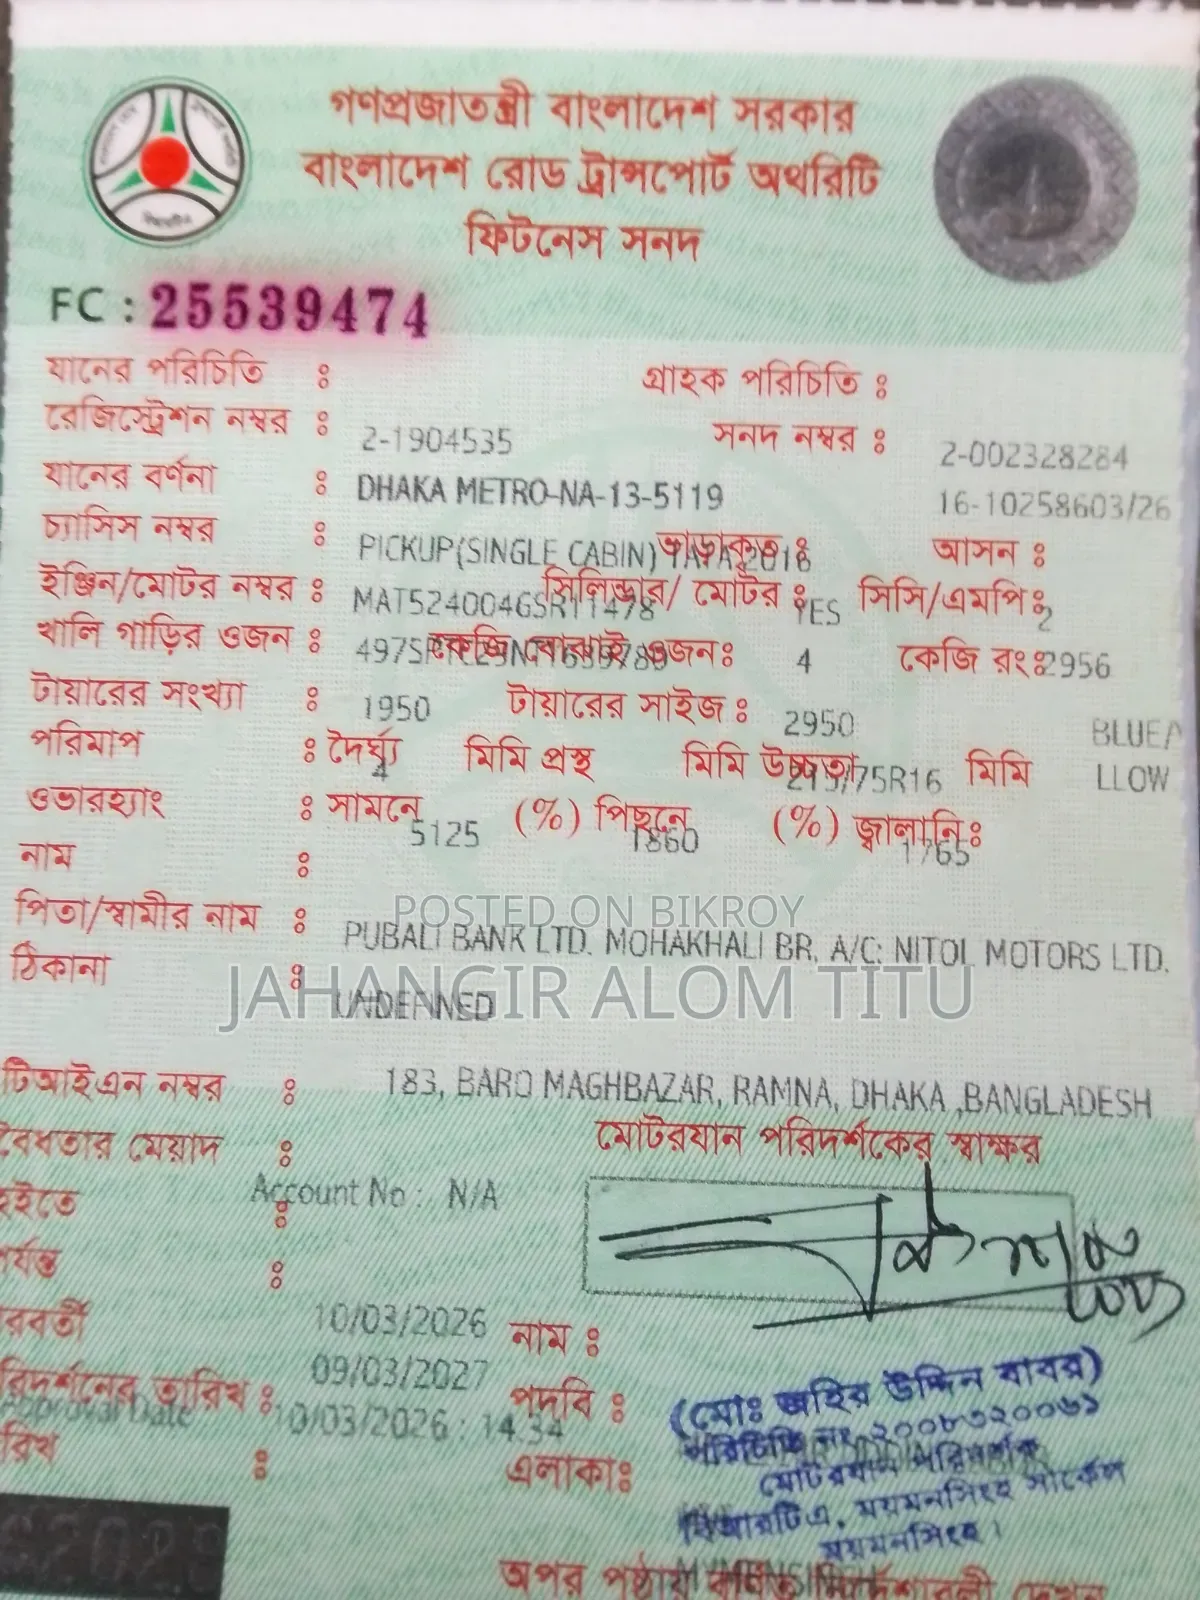 গণপ্রজাতন্ত্রী বাংলাদেশ সরকার
বাংলাদেশ রোড ট্রান্সপোর্ট অথরিটি
ফিটনেস সনদ
FC : 25539474
যানের পরিচিতি : গ্রাহক পরিচিতি :
রেজিস্ট্রেশন নম্বর : 2-1904535 সনদ নম্বর : 2-002328284
যানের বর্ণনা : DHAKA METRO-NA-13-5119 16-10258603/26
চ্যাসিস নম্বর : PICKUP(SINGLE CABIN) TATA 2016 ভাড়াকৃত : আসন :
ইঞ্জিন/মোটর নম্বর : MAT524004GSR11478 সিলিন্ডার/ মোটর : YES সিসি/এমপি : 2
খালি গাড়ির ওজন : কেজি বোঝাই ওজন : 4 কেজি রং : 2956
টায়ারের সংখ্যা : 1950 টায়ারের সাইজ : 2950 BLUE
পরিমাপ : দৈর্ঘ্য 4 মিমি প্রস্থ মিমি উচ্চতা 215/75R16 মিমি LLOW
ওভারহ্যাং : সামনে 5125 (%) পিছনে 1860 (%) জ্বালানি : 1765
নাম :
POSTED ON BIKROY
পিতা/স্বামীর নাম : PUBALI BANK LTD. MOHAKHALI BR, A/C: NITOL MOTORS LTD.
JAHANGIR ALOM TITU
ঠিকানা :
টিআইএন নম্বর : 183, BARO MAGHBAZAR, RAMNA, DHAKA ,BANGLADESH
বৈধতার মেয়াদ : মোটরযান পরিদর্শকের স্বাক্ষর
হইতে : Account No : N/A
র্যন্ত :
রবর্তী 10/03/2026 নাম :
09/03/2027
রিদর্শনের তারিখ : পদবি : (মোঃ জহির উদ্দিন বাবর)
Approval Date 10/03/2026 : 14:34 পরিচিতি নং ২০০৮৭২০০৬১
রিখ : এলাকা: মোটরযান পরিদর্শক
বিআরটিএ, ময়মনসিংহ সার্কেল
ময়মনসিংহ।
অপর পৃষ্ঠায় বর্ণিত নির্দেশাবলী দেখুন